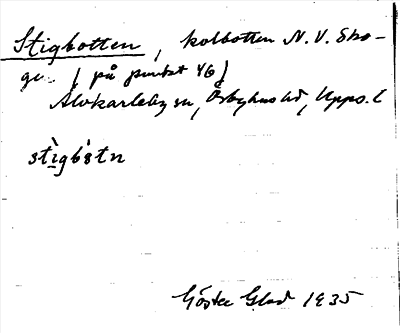 Stigbotten, kolbotten N.V. Sko-
ge. (på punkt 46)
Älvkarleby sn, Örbyhus hd, Upps. l
stìgbòtn
Gösta Glad 1935